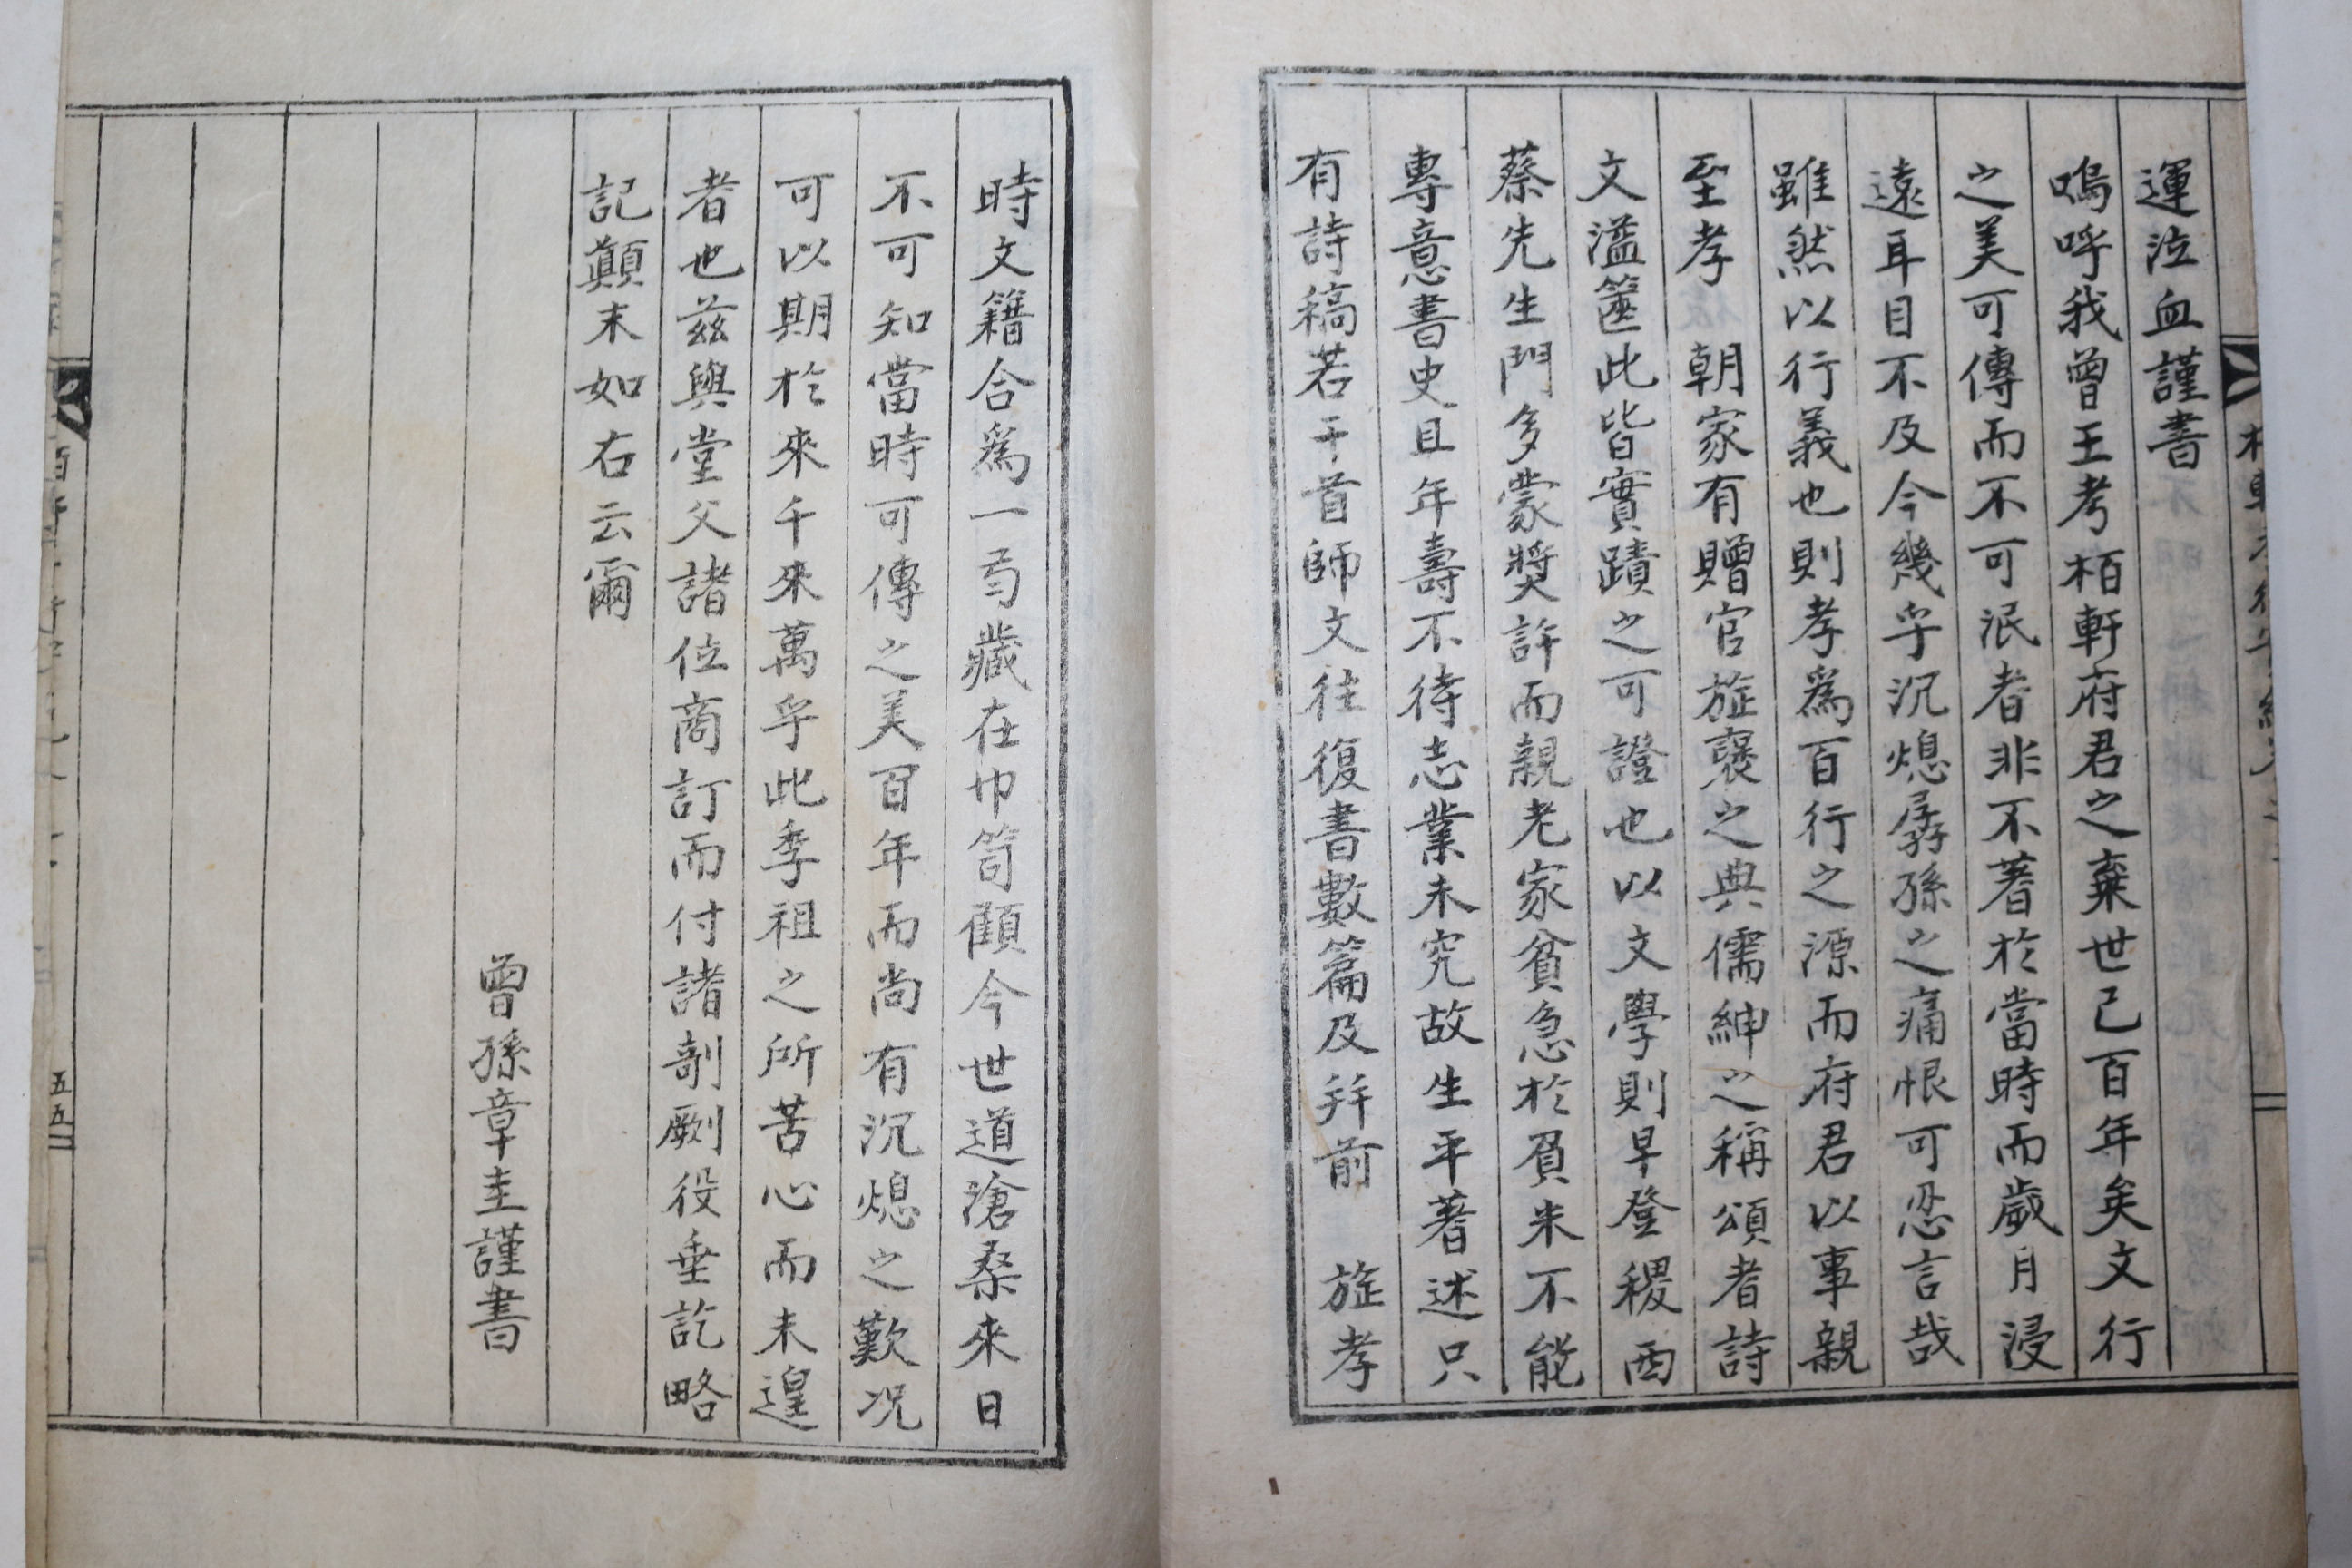 運泣血謹書
嗚呼我曾王考栢軒府君之棄世已百年矣文行
之美可傳而不可泯者非不著於當時而歲月浸
遠耳目不及今幾乎沉熄孱孫之痛恨可忍言哉
雖然以行義也則孝爲百行之源而府君以事親
至孝 朝家有贈官旌褒之典儒紳之稱頌者詩
文溢篋此皆實蹟之可證也以文學則早登稷西
蔡先生門多蒙奬許而親老家貧急於負米不能
專意書史且年壽不待志業未究故生平著述只
有詩稿若干首師文往復書數篇及幷前 旌孝
時文籍合爲一弓藏在巾笥顧今世道滄桑來日
不可知當時可傳之美百年而尚有沉熄之歎况
可以期於來千來萬乎此季祖之所苦心而未遑
者也玆與堂父諸位商訂而付諸剞劂役垂訖略
記顚末如右云爾
曾孫章圭謹書
五五